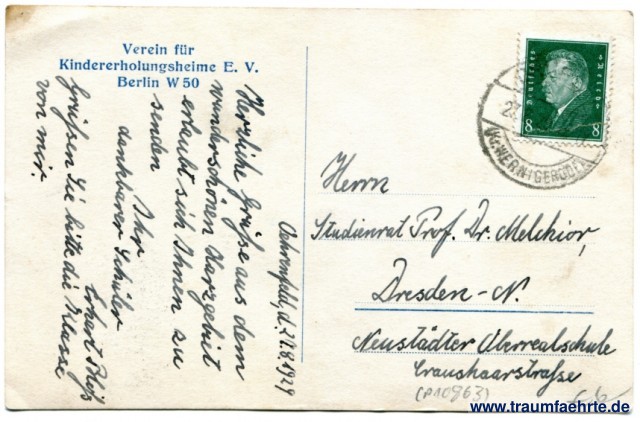 Verein für
Kindererholungsheime E. V.
Berlin W 50
Oehrenfeld, d. 27.8.1929
Herzliche Grüße aus dem
wunderschönen Harzgebiet
erlaubt sich Ihnen zu
senden
Ihr
dankbarer Schüler
Erhart
Grüßen Sie bitte die Klasse
von mir.
Deutsches Reich
8 8
WERNIGERODE
Herrn
Studienrat Prof. Dr. Melchior,
Dresden-N.
Neustädter Oberrealschule
Traushaarstraße
(P10963)
www.traumfaehrte.de